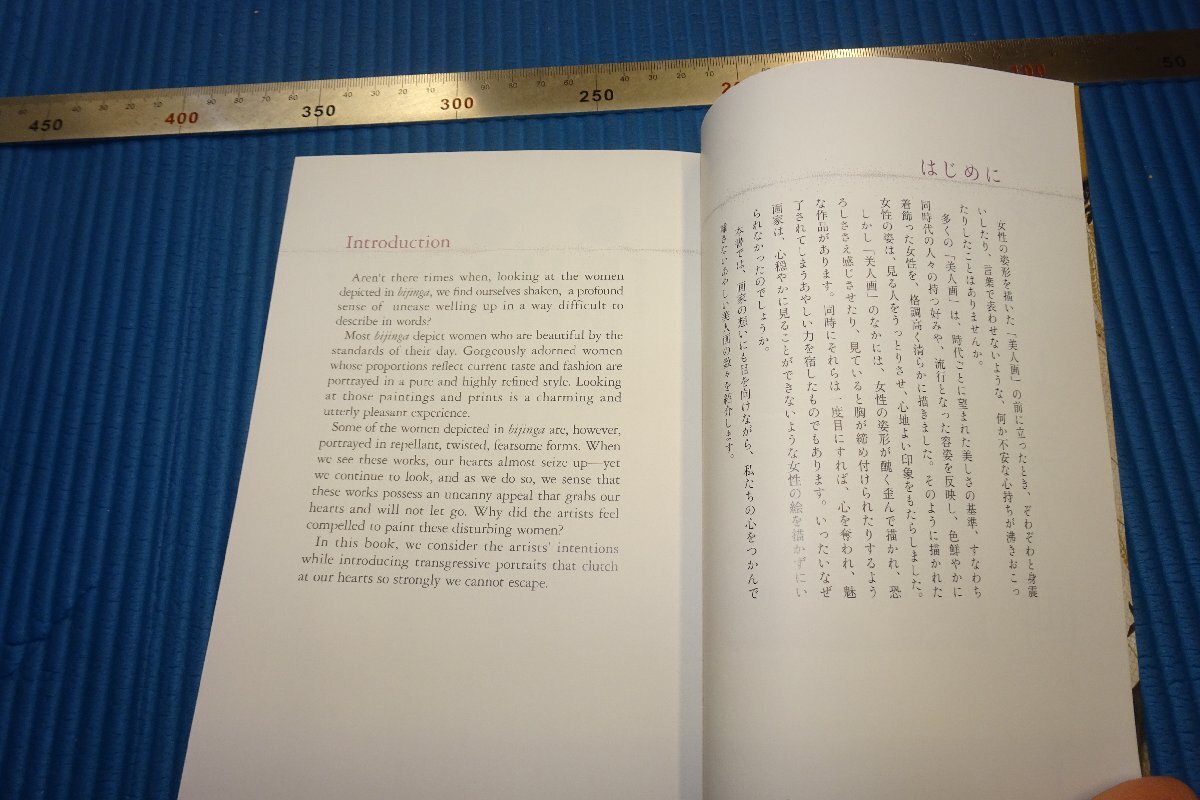 450
400
350
300
250
50
Introduction
Aren't there times when, looking at the women
depicted in bijinga, we find ourselves shaken, a profound
sense of unease welling up in a way difficult to
describe in words?
Most bijinga depict women who are beautiful by the
standards of their day. Gorgeously adorned women
whose proportions reflect current taste and fashion are
portrayed in a pure and highly refined style. Looking
at those paintings and prints is a charming and
utterly pleasant experience.
Some of the women depicted in bijinga are, however,
portrayed in repellant, twisted, fearsome forms. When
we see these works, our hearts almost seize up—yet
we continue to look, and as we do so, we sense that
these works possess an uncanny appeal that grabs our
hearts and will not let go. Why did the artists feel
compelled to paint these disturbing women?
In this book, we consider the artists' intentions
while introducing transgressive portraits that clutch
at our hearts so strongly we cannot escape.
はじめに
女性の姿形を描いた「美人画」の前に立ったとき、ぞわぞわと身震
いしたり、言葉で表わせないような、何か不安な心持ちが沸きおこっ
たりしたことはありませんか。
多くの「美人画」は、時代ごとに望まれた美しさの基準、すなわち
同時代の人々の持つ好みや、流行となった容姿を反映し、色鮮やかに
着飾った女性を、格調高く清らかに描きました。そのように描かれた
女性の姿は、見る人をうっとりさせ、心地よい印象をもたらしました。
しかし「美人画」のなかには、女性の姿形が醜く歪んで描かれ、恐
ろしささえ感じさせたり、見ていると胸が締め付けられたりするよう
な作品があります。同時にそれらは一度目にすれば、心を奪われ、魅
了されてしまうあやしい力を宿したものでもあります。いったいなぜ
画家は、心穏やかに見ることができないような女性の絵を描かずにい
られなかったのでしょうか。
本書では、画家の想いにも目を向けながら、私たちの心をつかんで
離さないあやしい美人画の数々を紹介します。